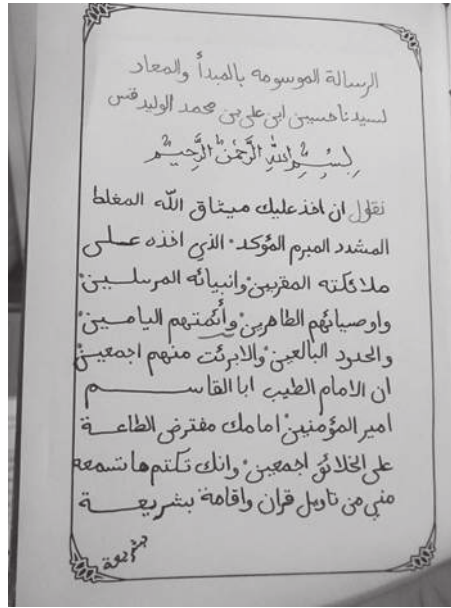 الرسالة الموسومه بالمبدأ والمعاد
لسيدنا حسين ابن علي بن محمد الوليد قس
بِسْمِ اللهِ الرَّحْمٰنِ الرَّحِيمِ
نقول ان اخذ عليك ميثاق الله المغلط
المشدد المبرم المؤكد الذي اخذه على
ملائكته المقربين وانبيائه المرسلين
واوصيائهم الطاهرين وأئمتهم اليامين
والحدود البالغين والابرئت منهم اجمعين
ان الامام الطيب ابا القاسم
امير المؤمنين امامك مفترض الطاعة
على الخلائق اجمعين وانك تكتم ما تسمعه
مني من تاويل قران واقامة بشريعة
بشريعة